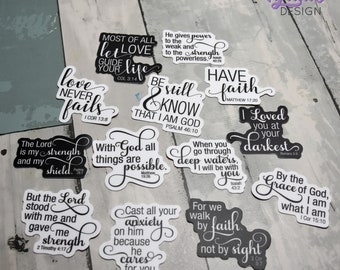 DESIGN
MOST OF ALL
let LOVE
GUIDE YOUR life
COL 3:14
He gives power
to the
weak and
to the strength
powerless.
love
NEVER
fails
1 COR 13:8
BE
still
&
KNOW
THAT I AM GOD
PSALM 46:10
HAVE
faith
I Loved
you at
your
darkest.
The Lord
is my strength
and my
shield.
With God all
things are
possible.
When you
go through
deep waters,
I will be with
you
By the
grace of God
I am
what I am
1 Cor 15:10
But the Lord
stood
with me and
gave me
strength
2 Timothy 4:17
Cast all your
anxiety
on him
because he
cares for
you
For we
walk by
faith
not by sight